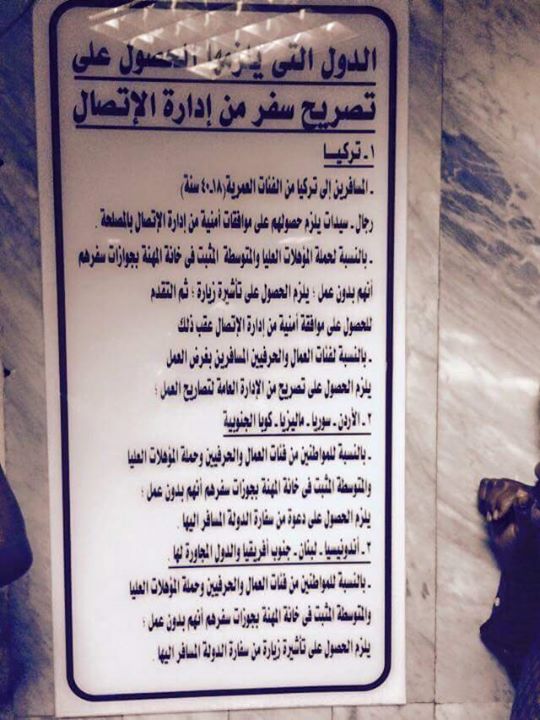 الدول التى يلزمها الحصول على
تصريح سفر من إدارة الإتصال
١ـ تركيا
ـ المسافرين إلى تركيا من الفئات العمرية (١٨ـ٤٠ سنة)
رجال ـ سيدات يلزم حصولهم على موافقات أمنية من إدارة الإتصال بالمصلحة .
ـ بالنسبة لحملة المؤهلات العليا والمتوسطة المثبت فى خانة المهنة بجوازات سفرهم
أنهم بدون عمل ؛ يلزم الحصول على تأشيرة زيارة ؛ ثم التقدم
للحصول على موافقة أمنية من إدارة الإتصال عقب ذلك
ـ بالنسبة لفئات العمال والحرفيين المسافرين بغرض العمل
يلزم الحصول على تصريح من الإدارة العامة لتصاريح العمل ؛
٢ـ الأردن ـ سوريا ـ ماليزيا ـ كوبا الجنوبية
ـ بالنسبة للمواطنين من فئات العمال والحرفيين وحملة المؤهلات العليا
والمتوسطة المثبت فى خانة المهنة بجوزات سفرهم أنهم بدون عمل ؛
يلزم الحصول على دعوة من سفارة الدولة المسافر اليها .
٣ـ أندونيسيا ـ لبنان ـ جنوب أفريقيا والدول المجاورة لها .
ـ بالنسبة للمواطنين من فئات العمال والحرفيين وحملة المؤهلات العليا
والمتوسطة المثبت فى خانة المهنة بجوزات سفرهم أنهم بدون عمل ؛
يلزم الحصول على تأشيرة زيارة من سفارة الدولة المسافر اليها .